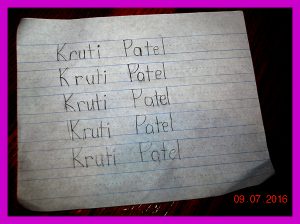 Kruti Patel
Kruti Patel
Kruti Patel
Kruti Patel
Kruti Patel
09.07.2016